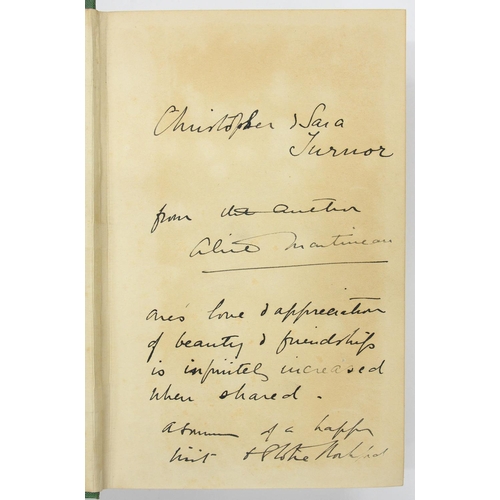 Christopher & Sara
Turnor
from the author
Alice Martineau
One's love & appreciation
of beauty & friendships
is infinitely increased
when shared.
of a happy
visit to Stoke Rochford